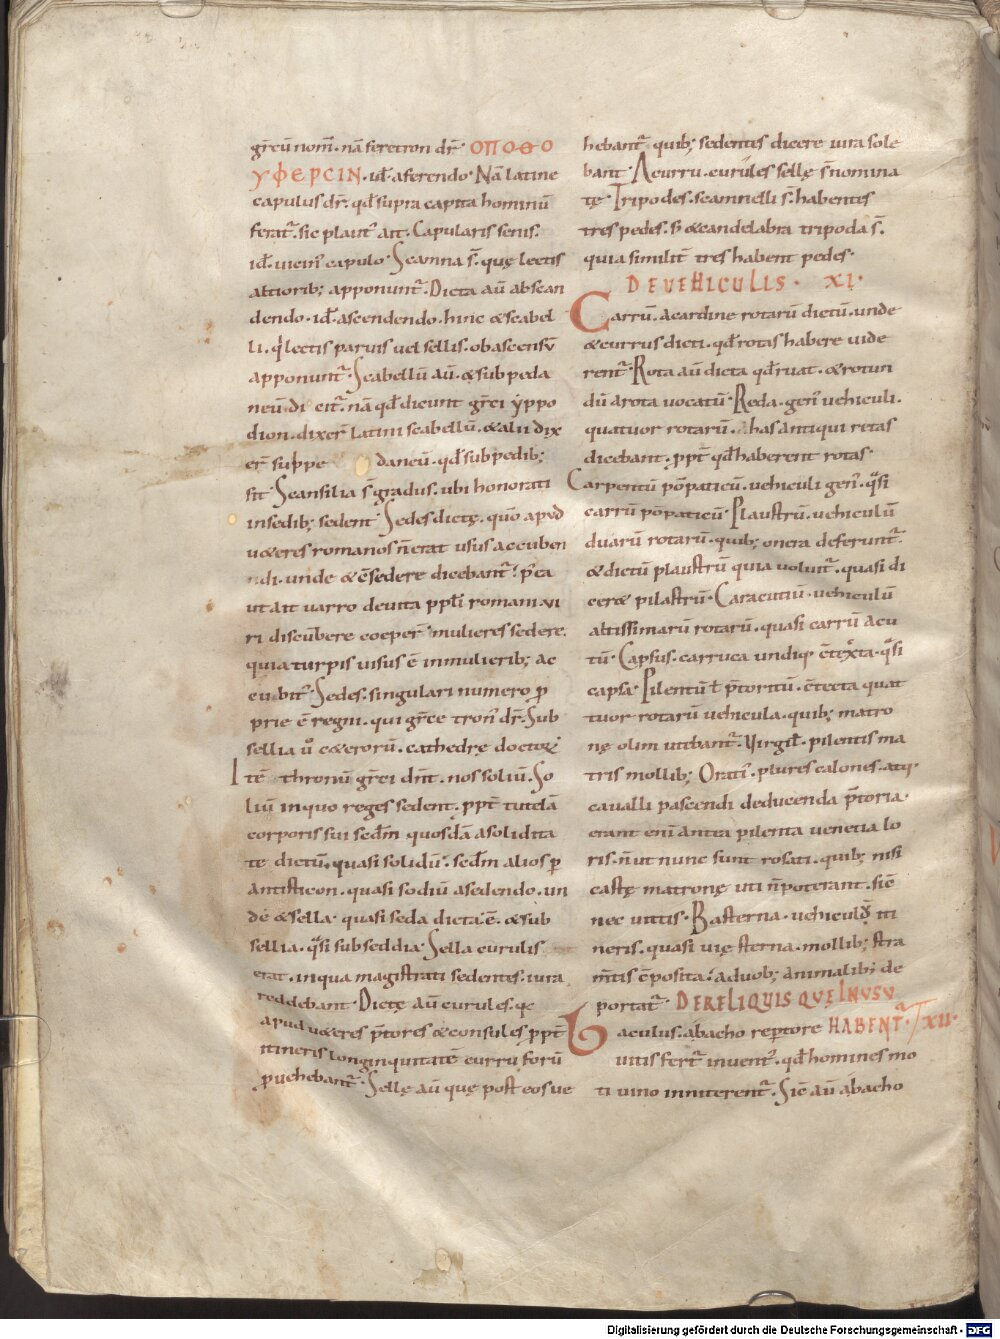 grecū nom̄. nā feretron dr̄ ΟΠΟΘΟ
ΥΦΕΡCΙΝ. id̄. a ferendo. Nā latine
capulus dr̄. qd̄ supra capita hominū
feratͬ. sic plautꝰ ait. Capularis senis.
id̄. uicinꝰ capulo. Scamna s̄. quę lectis
altiorib; apponuntͬ. Dicta aū ab scan
dendo. id̄. ascendendo. hinc & scabel
li. q̇ lectis paruis uel sellis. ob ascensū
apponuntͬ. Scabellū aū. & subpeda
neū. dicitͬ. nā qd̄ dicunt greci ẏppo
dion. dixerͬ latini scabellū. & alii dix
erͬ suppe daneū. qd̄ sub pedib;
sit. Scansilia s̄ gradus. ubi honorati
in sedib; sedent. Sedes dictę. quō apud
ueteres romanos n̄ erat usus accuben
ndi. unde & c̄sedere dicebantͬ. p̄ea
ut ait uarro de uita ppl̄i romani. ui
ri discūbere coeperͬ mulieres sedere.
quia turpis uisus ē in mulierib; ac
cubitꝰ. Sedes. singulari numero ꝓ
prie ē regni. qui grēce tronꝰ dr̄. Sub
sellia ů ceterorū. cathedrę doctorꝝ
Itē thronū greci dn̄t. nos soliū. So
liū in quo reges sedent. ꝓpt̄ tutelā
corporis sui sedm̄ quosdā a solidita
te dictū. quasi solidū. sedm̄ alios ꝑ
antisticon. quasi sodiū a sedendo. un
de & sella. quasi seda dicta ē. & sub
sellia. q̄si subseddia. Sella curulis
erat. in qua magistrati sedentes. iura
reddebant. Dictę aū curules. qa
apud ueteres p̄tores & consules ꝓpt̄
itineris longinquitatē curru forū
ꝓuehebantͬ. Sellę aū quę post eos ue
hebantͬ quib; sedentes dicere iura sole
bant. A curru. curules sellę s̄ nomina
tę. Tripodes. scamnelli s̄. habentes
tres pedes. s; & candelabra tripoda s̄.
quia similit̄ tres habent pedes.
DE UEHICULIS. XI.
Carrū. a cardine rotarū dictū. unde
& currus dicti. qd̄ rotas habere uide
rentͬ. Rota aū dicta qd̄ ruat. & rotun
dū a rota uocatū. Reda. genꝰ uehiculi.
quatuor rotarū. has antiqui retas
dicebant. ꝓpt̄ qd̄ haberent rotas.
Carpentū pōpaticū. uehiculi genꝰ. q̄si
carrū pōpaticū. Plaustrū. uehiculū
duarū rotarū. quib; onera deferuntͬ.
& dictū plaustrū quia uoluitͬ. quasi di
ceret pilastrū. Caracutiū. uehiculū
altissimarū rotarū. quasi carrū acu
tū. Capsus. carruca undiq; c̄texta. q̄si
capsa. Pilentū ł p̄toritū. c̄tecta quat
tuor rotarū uehicula. quib; matro
nę olim utebantͬ. Virgil̄. pilentis ma
tris mollib; Oratiꝰ. plures calones. atq;
caualli pascendi deducenda p̄toria.
erant enī antea pilenta uenetia lo
ris. n̄ ut nunc sunt rosati. quib; nisi
castę matronę uti n̄ poterant. sic̄
nec uittis. Basterna. uehiculū iti
neris. quasi uię sterna. mollib; stra
m̄tis c̄posita. a duob; animalib; de
portatͬ. DE RELIQUIS QUE IN USU
HABENTͬ. XII.
Baculus. a bacho repertore
uitis fertͬ inuentꝰ. qd̄ homines mo
ti uino inniterentͬ. Sic̄ aū a bacho
Digitalisierung gefördert durch die Deutsche Forschungsgemeinschaft - DFG